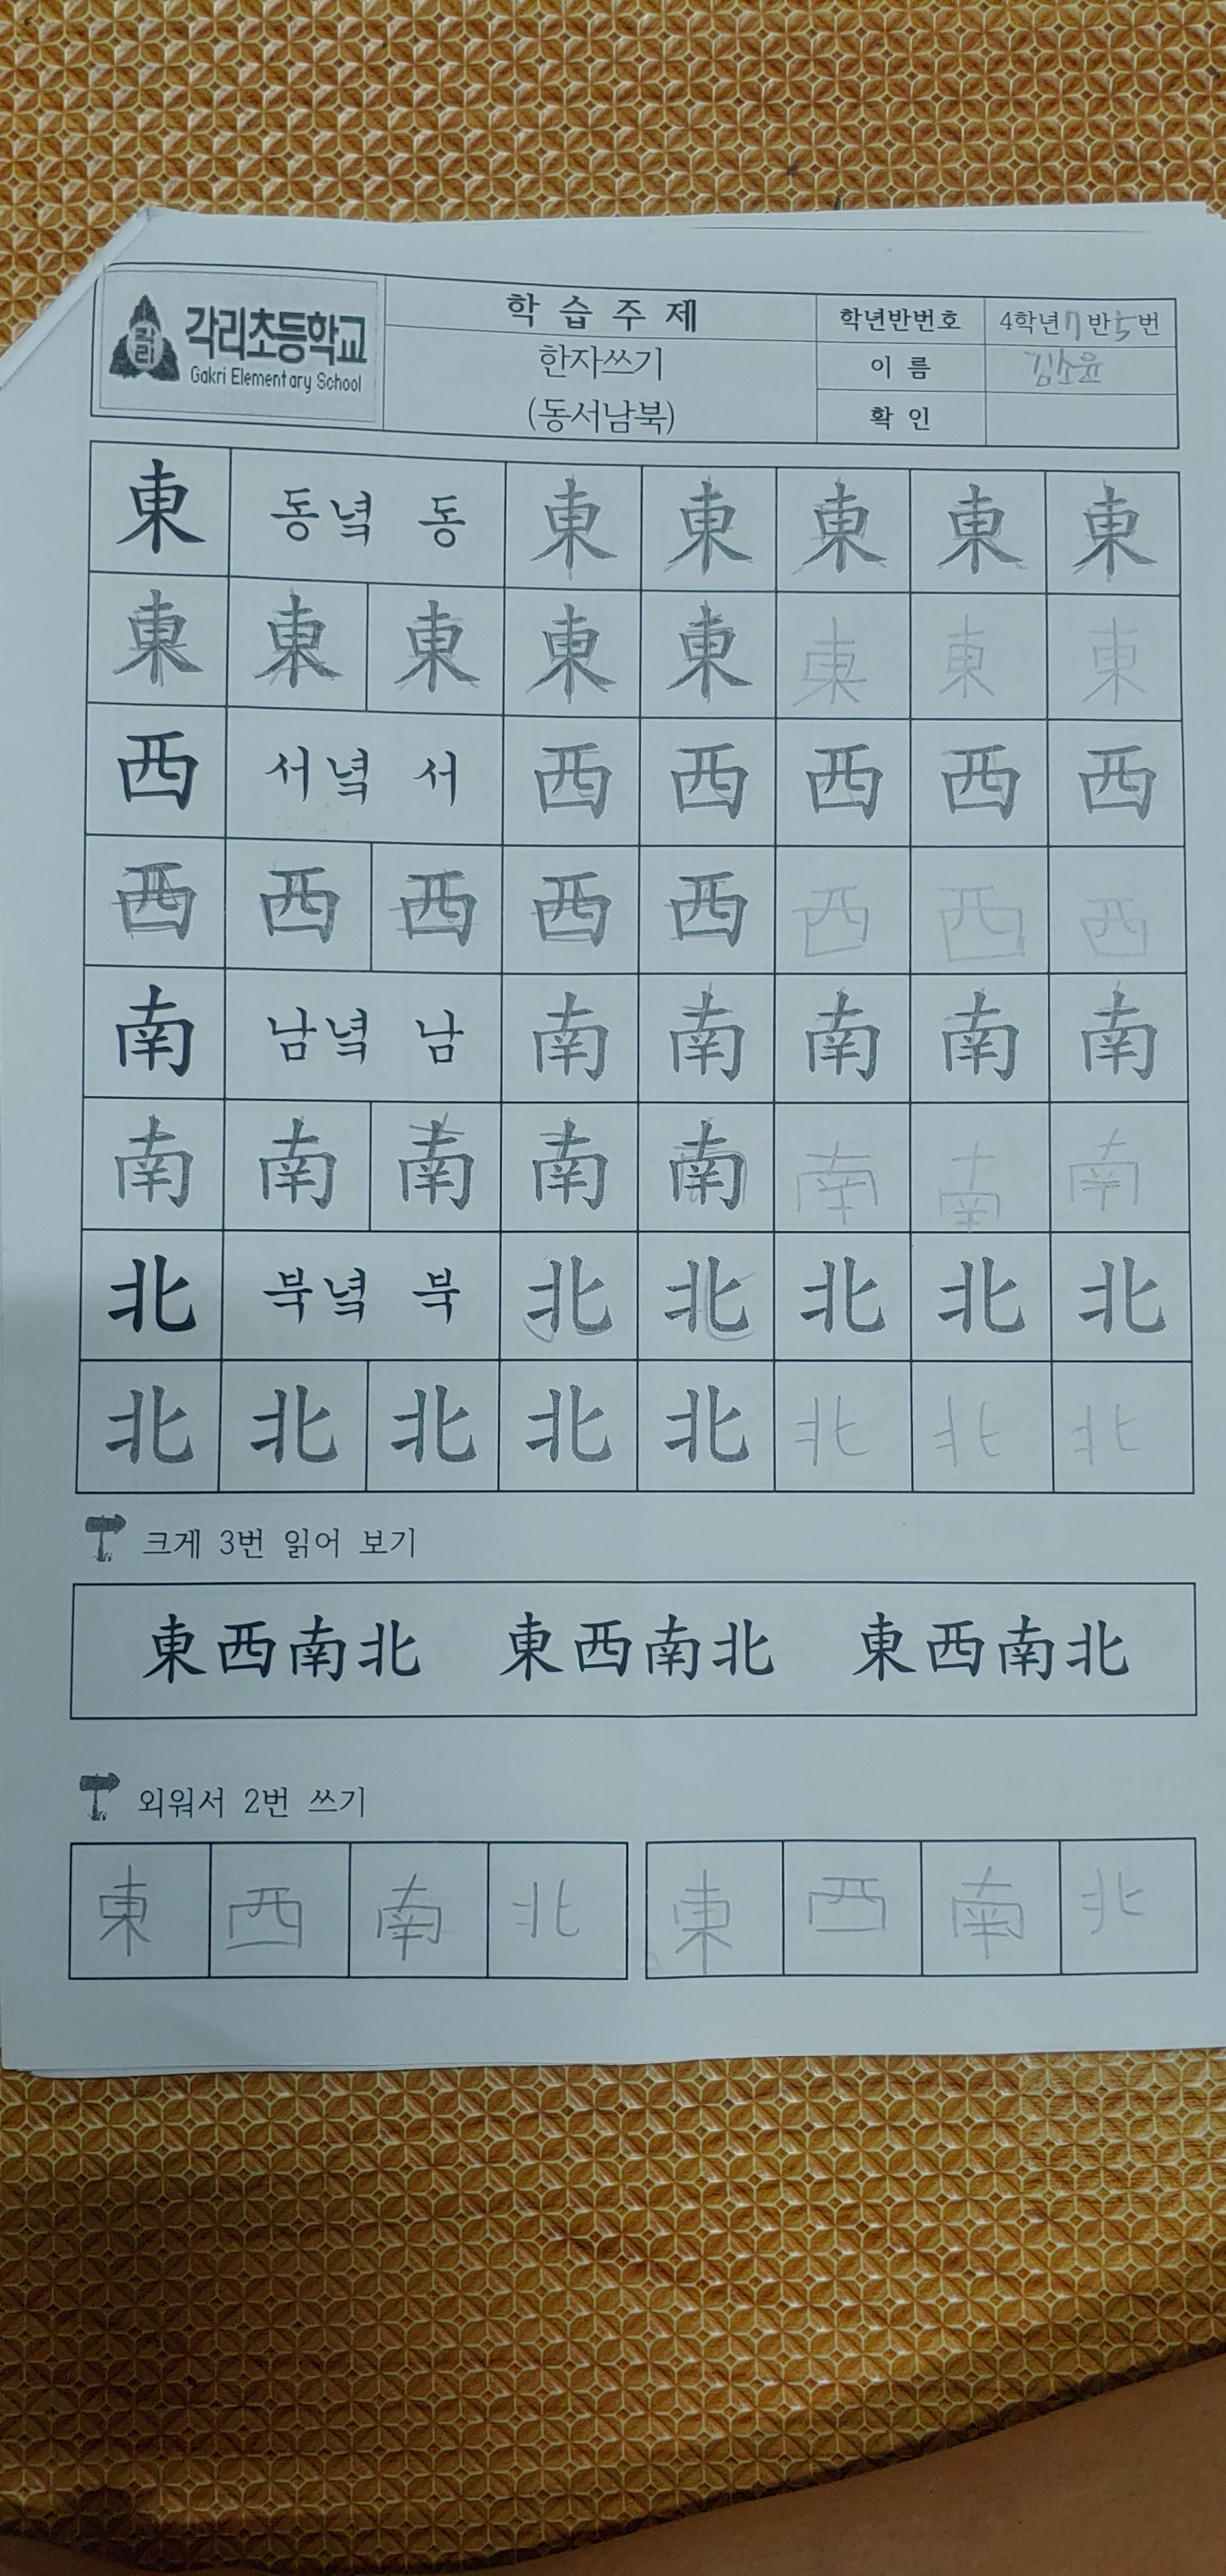 각리
각리초등학교
Gakri Elementary School
학습주제
한자쓰기
(동서남북)
학년반번호 4학년 7반 5번
이름 김소윤
확인
東 동녘 동 東 東 東 東 東
東 東 東 東 東 東 東 東
西 서녘 서 西 西 西 西 西
西 西 西 西 西 西 西 西
南 남녘 남 南 南 南 南 南
南 南 南 南 南 南 南 南
北 북녘 북 北 北 北 北 北
北 北 北 北 北 北 北 北
크게 3번 읽어 보기
東西南北 東西南北 東西南北
외워서 2번 쓰기
東 西 南 北 東 西 南 北